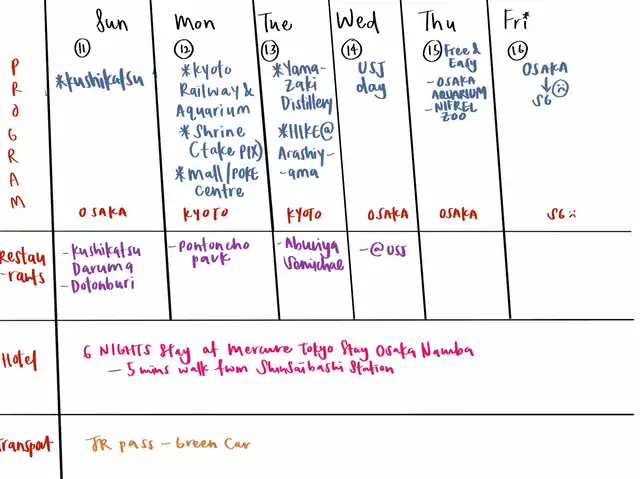 Sun Mon Tue Wed Thu Fri*
11 12 13 14 15 16
PROGRAM
*kushikatsu
*kyoto
Railway &
Aquarium
*Shrine
(take PIX)
*mall/POKE
centre
*Yama-
zaki
Distillery
*HIKE@
Arashiy-
-ama
USJ
day
Free &
Easy
- OSAKA
AQUARIUM
- NIFREL
ZOO
OSAKA
↓
SG
OSAKA KYOTO KYOTO OSAKA OSAKA SG
Restau
-rants
- Kushikatsu
Daruma
- Dotonburi
- Pontoncho
park
- Aburiya
- @ USJ
Hotel
6 NIGHTS Stay at Mercure Tokyo Stay Osaka Namba
- 5 mins walk from Shinsaibashi Station
Transport
JR pass - Green Car